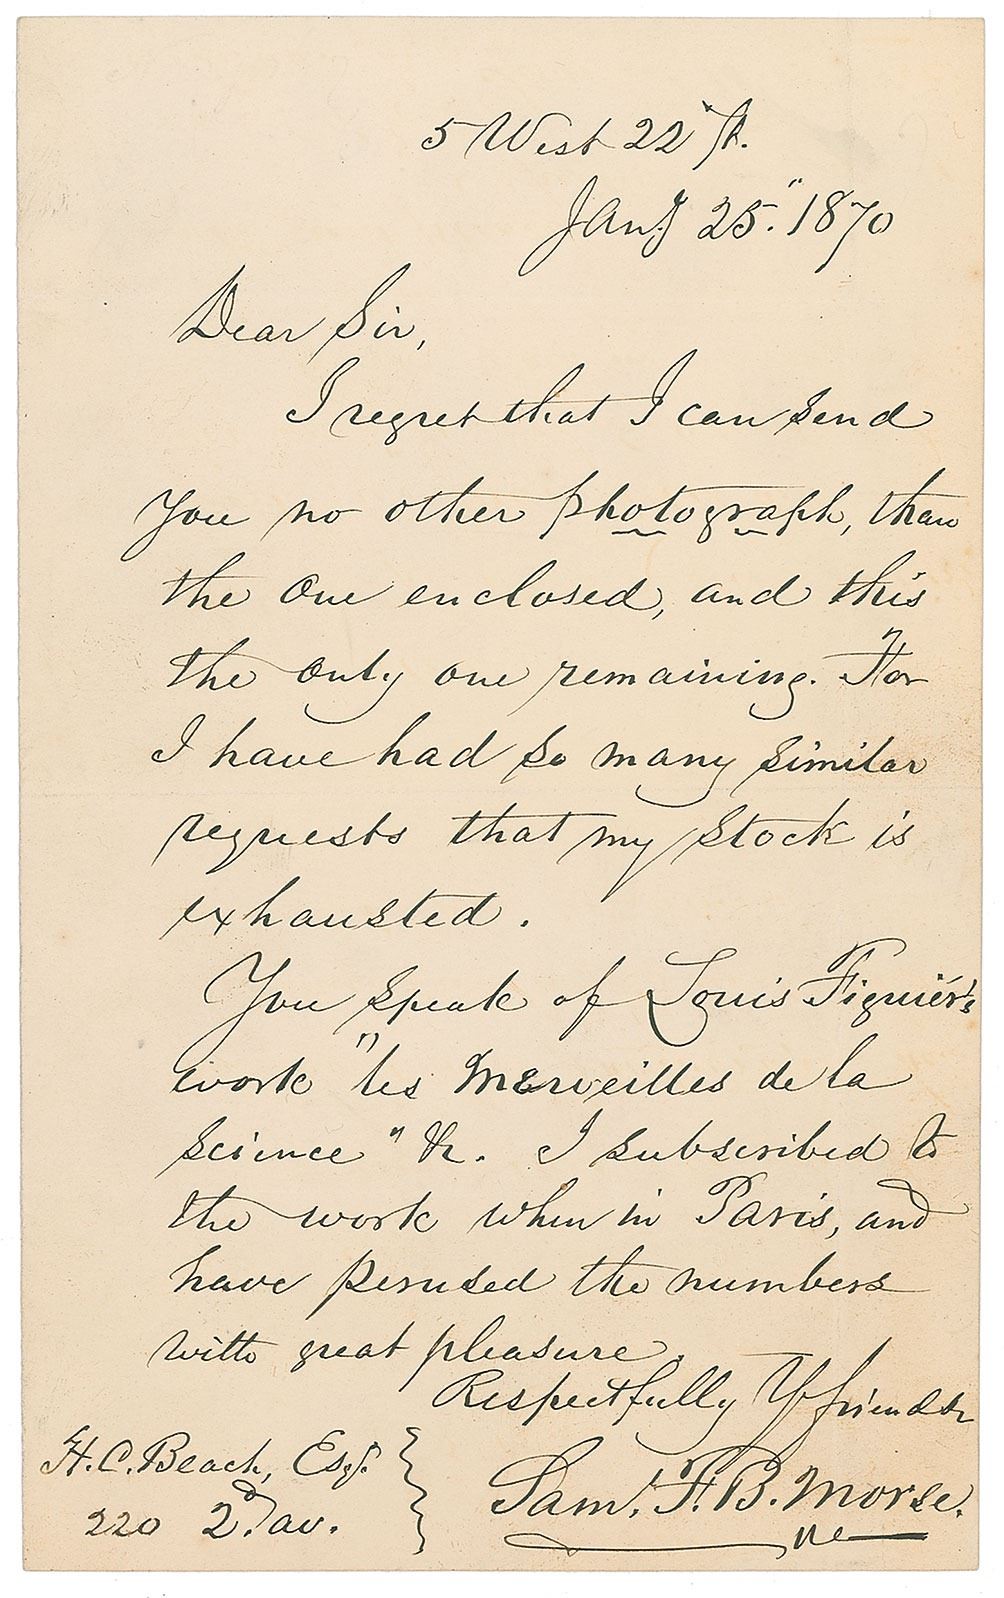 5 West 22d St.
Jany 25." 1870
Dear Sir,
I regret that I can send
you no other photograph, than
the one enclosed, and this
the only one remaining. For
I have had so many similar
requests that my stock is
exhausted.
You speak of Louis Figuier's
work "les Merveilles de la
science" &c. I subscribed to
the work when in Paris, and
have perused the numbers
with great pleasure.
Respectfully Yr friend
Sam. F. B. Morse.
H. C. Beach, Esqr.
220 2d av.